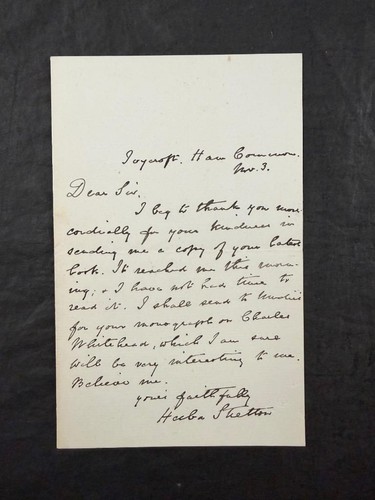 Ivycroft. Ham Common.
Nov. 3.
Dear Sir,
I beg to thank you most
cordially for your kindness in
sending me a copy of your latest
book. It reached me this morn-
ing; & I have not had time to
read it. I shall send to Mudie's
for your monograph on Charles
Whitehead, which I am sure
will be very interesting to me.
Believe me.
yours faithfully
Hesba Stretton